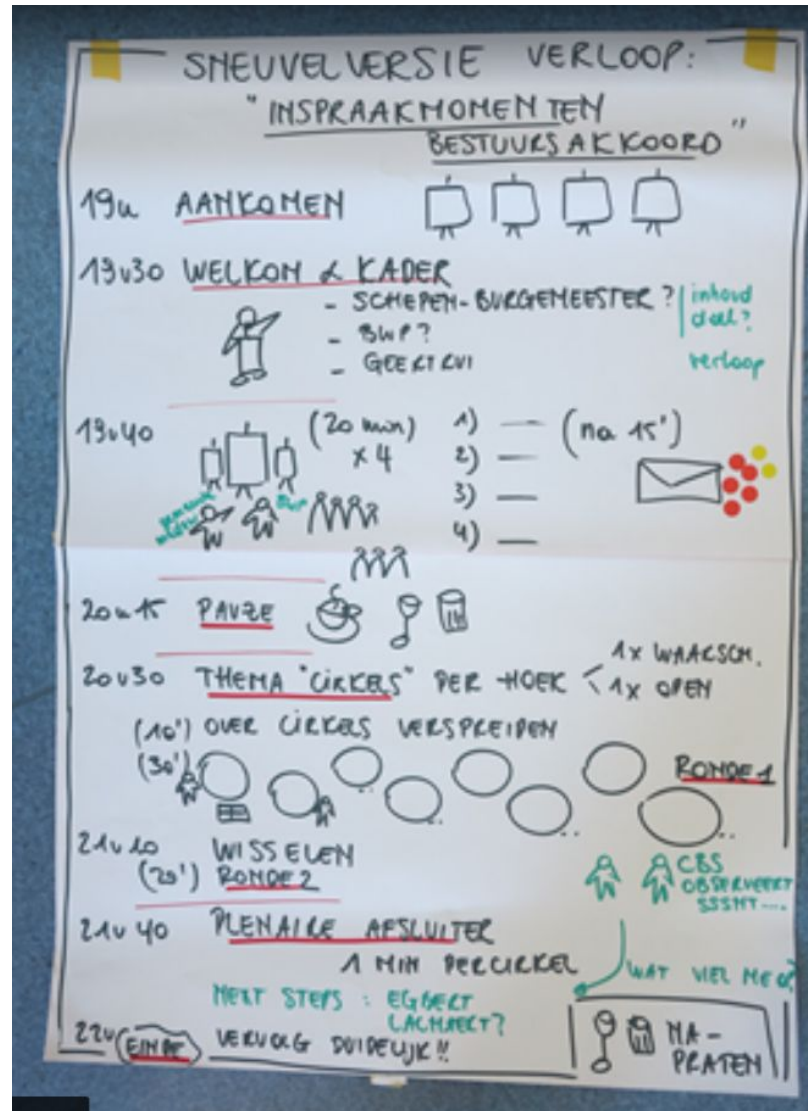 SNEUVELVERSIE VERLOOP:
"INSPRAAKMOMENTEN
BESTUURSAKKOORD"
19u AANKOMEN
19u30 WELKOM & KADER
- SCHEPEN-BURGEMEESTER? inhoud
doel?
- BWP?
- GEERTRUI verloop
19u40 (20 min) 1) — (na 15')
x4 2) —
3) —
4) —
20u15 PAUZE
20u30 THEMA "CIRKELS" PER HOEK 1x WAARSCH.
1x OPEN
(10') OVER CIRKELS VERSPREIDEN
(30') RONDE 1
21u10 WISSELEN
(20') RONDE 2
CBS
OBSERVEERT
SSSHT....
21u40 PLENAIRE AFSLUITER
1 MIN PER CIRKEL
WAT VIEL ME OP?
NEXT STEPS: EGBERT
LACHAERT?
22u EINDE VERVOLG DUIDELIJK!!
NA-
PRATEN